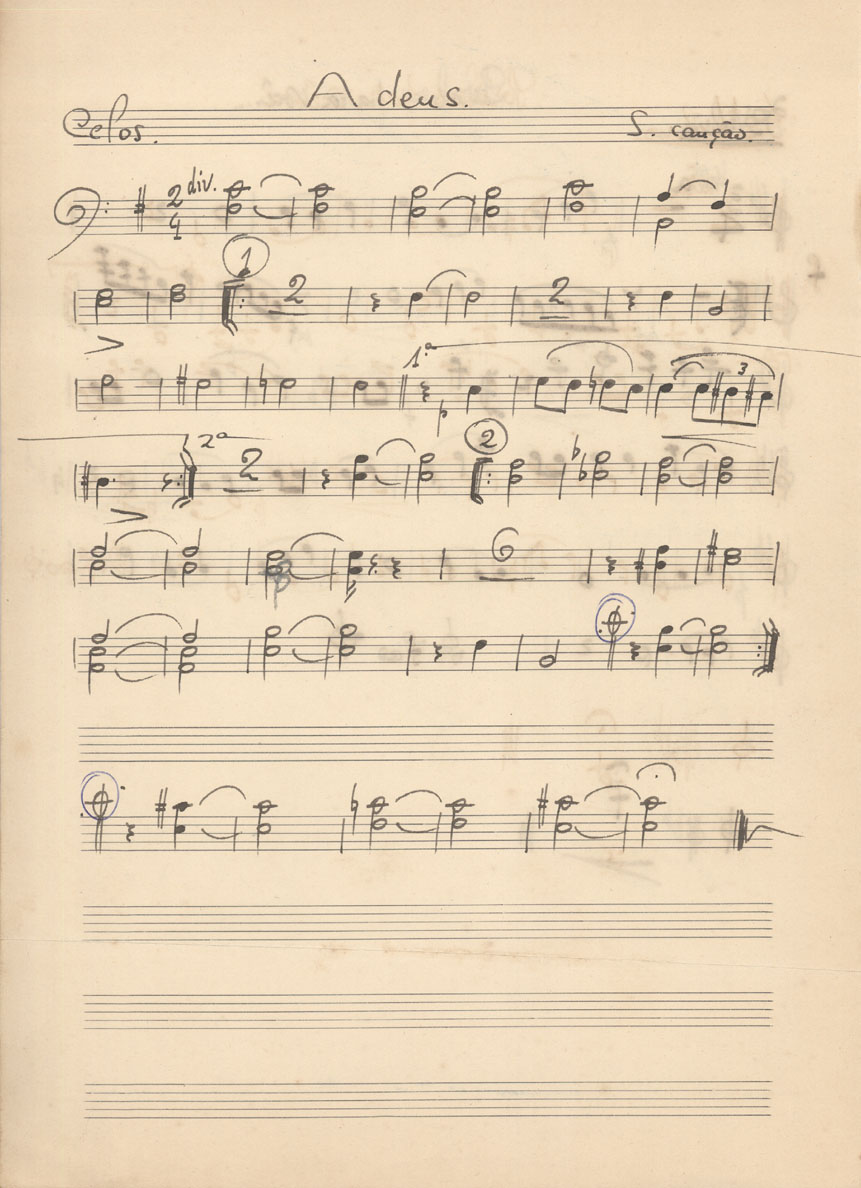 Adeus.
Celos. S. canção.
2
4
div.
1
2 2
1ª
3
2ª 2 2
6